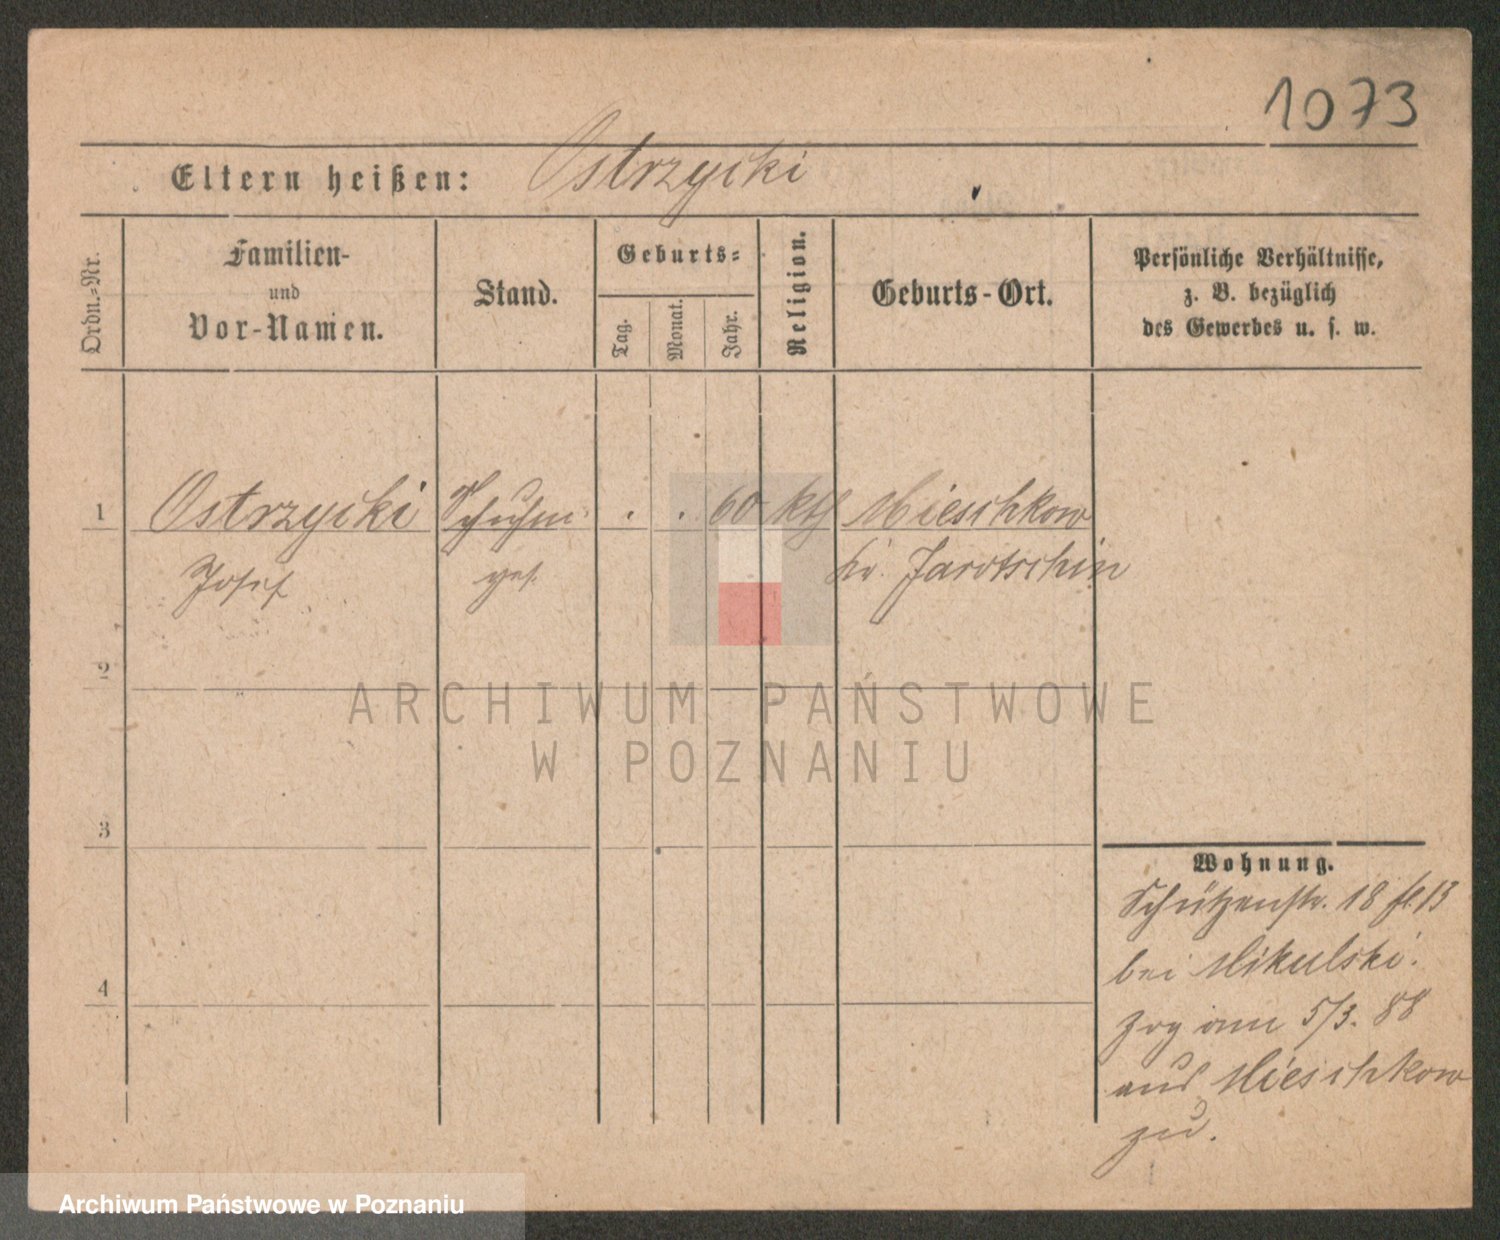 1073
Eltern heißen: Ostrzycki
Ordn.-Nr.
Familien-
und
Vor-Namen.
Stand.
Geburts-
Tag.
Monat.
Jahr.
Religion.
Geburts-Ort.
Persönliche Verhältnisse,
z. B. bezüglich
des Gewerbes u. s. w.
1 Ostrzycki Schuhm . . 60 kth Mieschkow
Josef ges. Kr. Jarotschin
2
3
4
ARCHIWUM PAŃSTWOWE
W POZNANIU
Wohnung.
Schützenstr. 18
bei Mikulski.
zog am 5/3. 88
aus Mieschkow
zu.
Archiwum Państwowe w Poznaniu